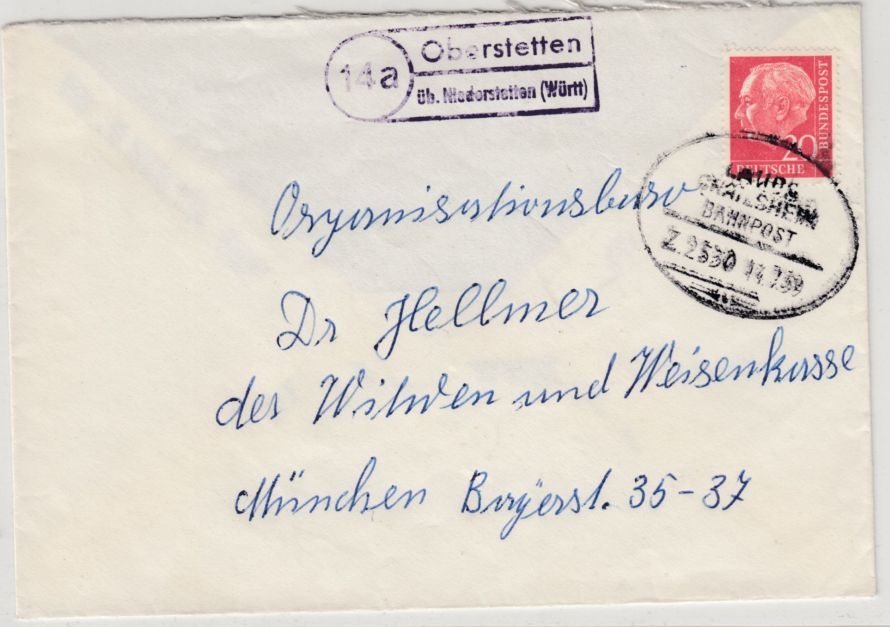 14a
Oberstetten
üb. Niederstetten (Württ)
20
BUNDESPOST
DEUTSCHE
LAUDA
CRAILSHEIM
BAHNPOST
Z.2530 14.7.59
Organisationsburo
Dr Hellmer
der Witwen und Weisenkasse
München Bayerst. 35-37